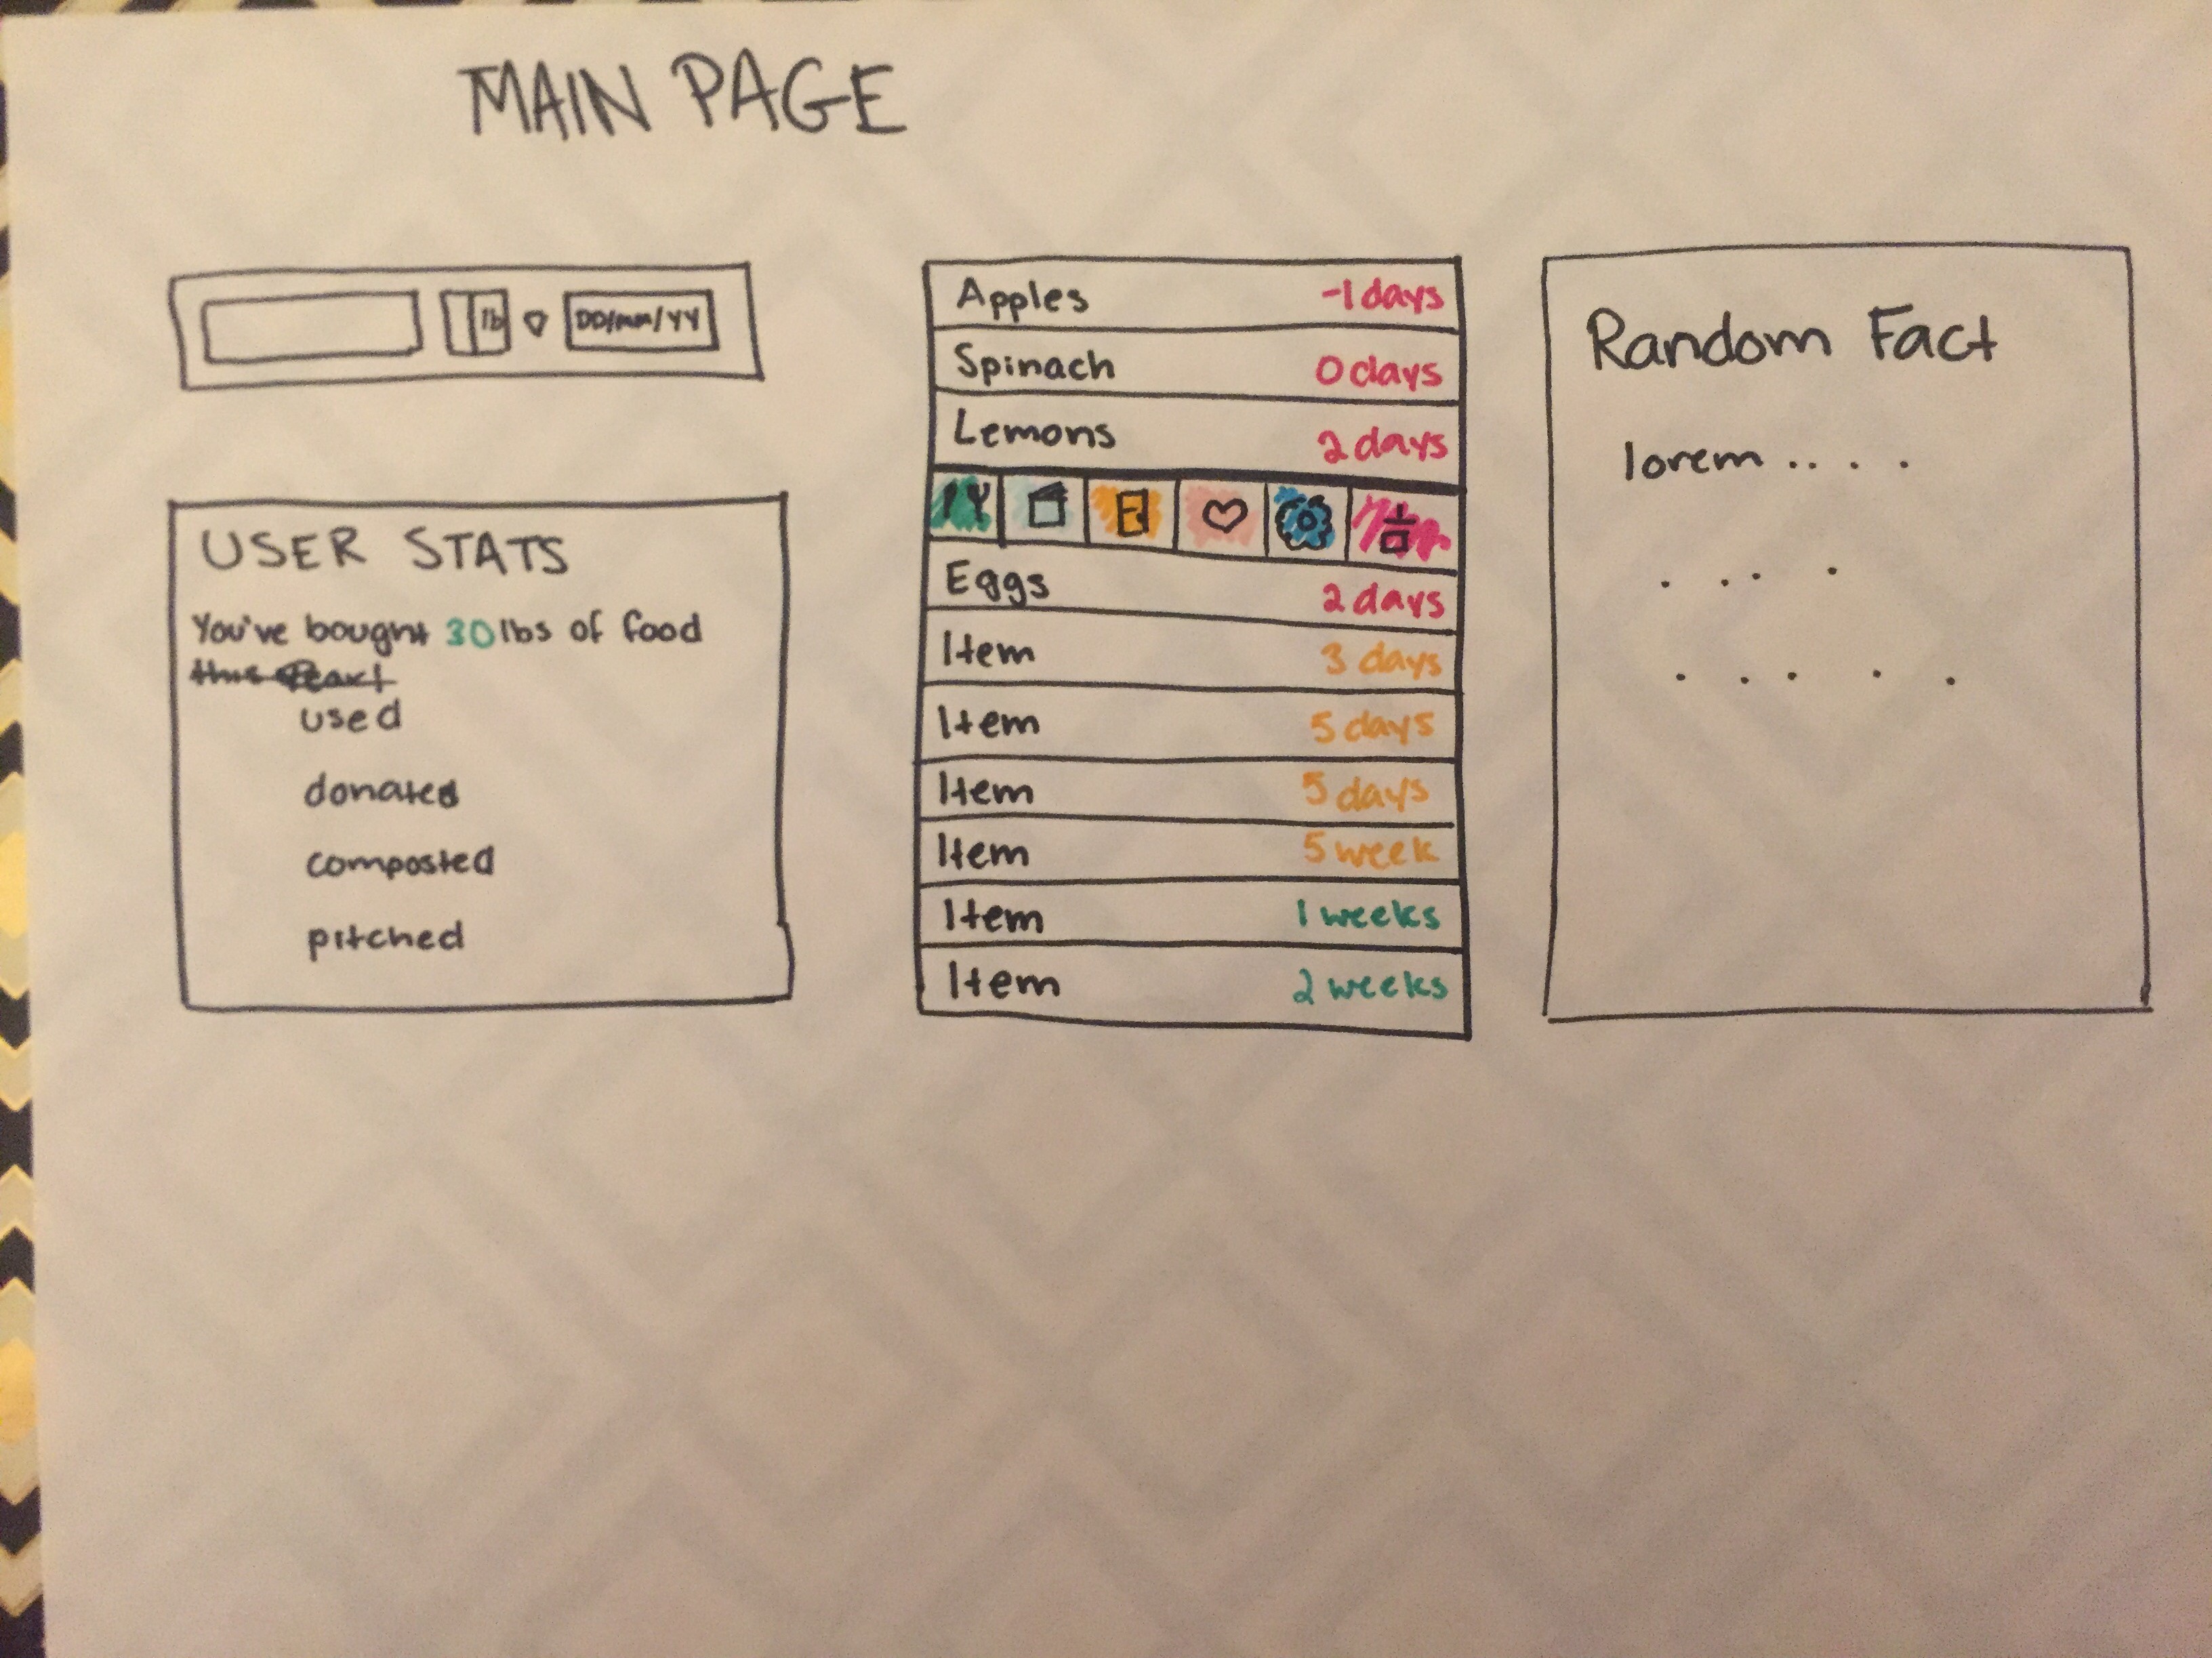 MAIN PAGE
lb DD/mm/YY
USER STATS
You've bought 30 lbs of food
used
donated
composted
pitched
Apples -1 days
Spinach 0 days
Lemons 2 days
Eggs 2 days
Item 3 days
Item 5 days
Item 5 days
Item 5 week
Item 1 weeks
Item 2 weeks
Random Fact
lorem .. . .
. .. .
. . . . .